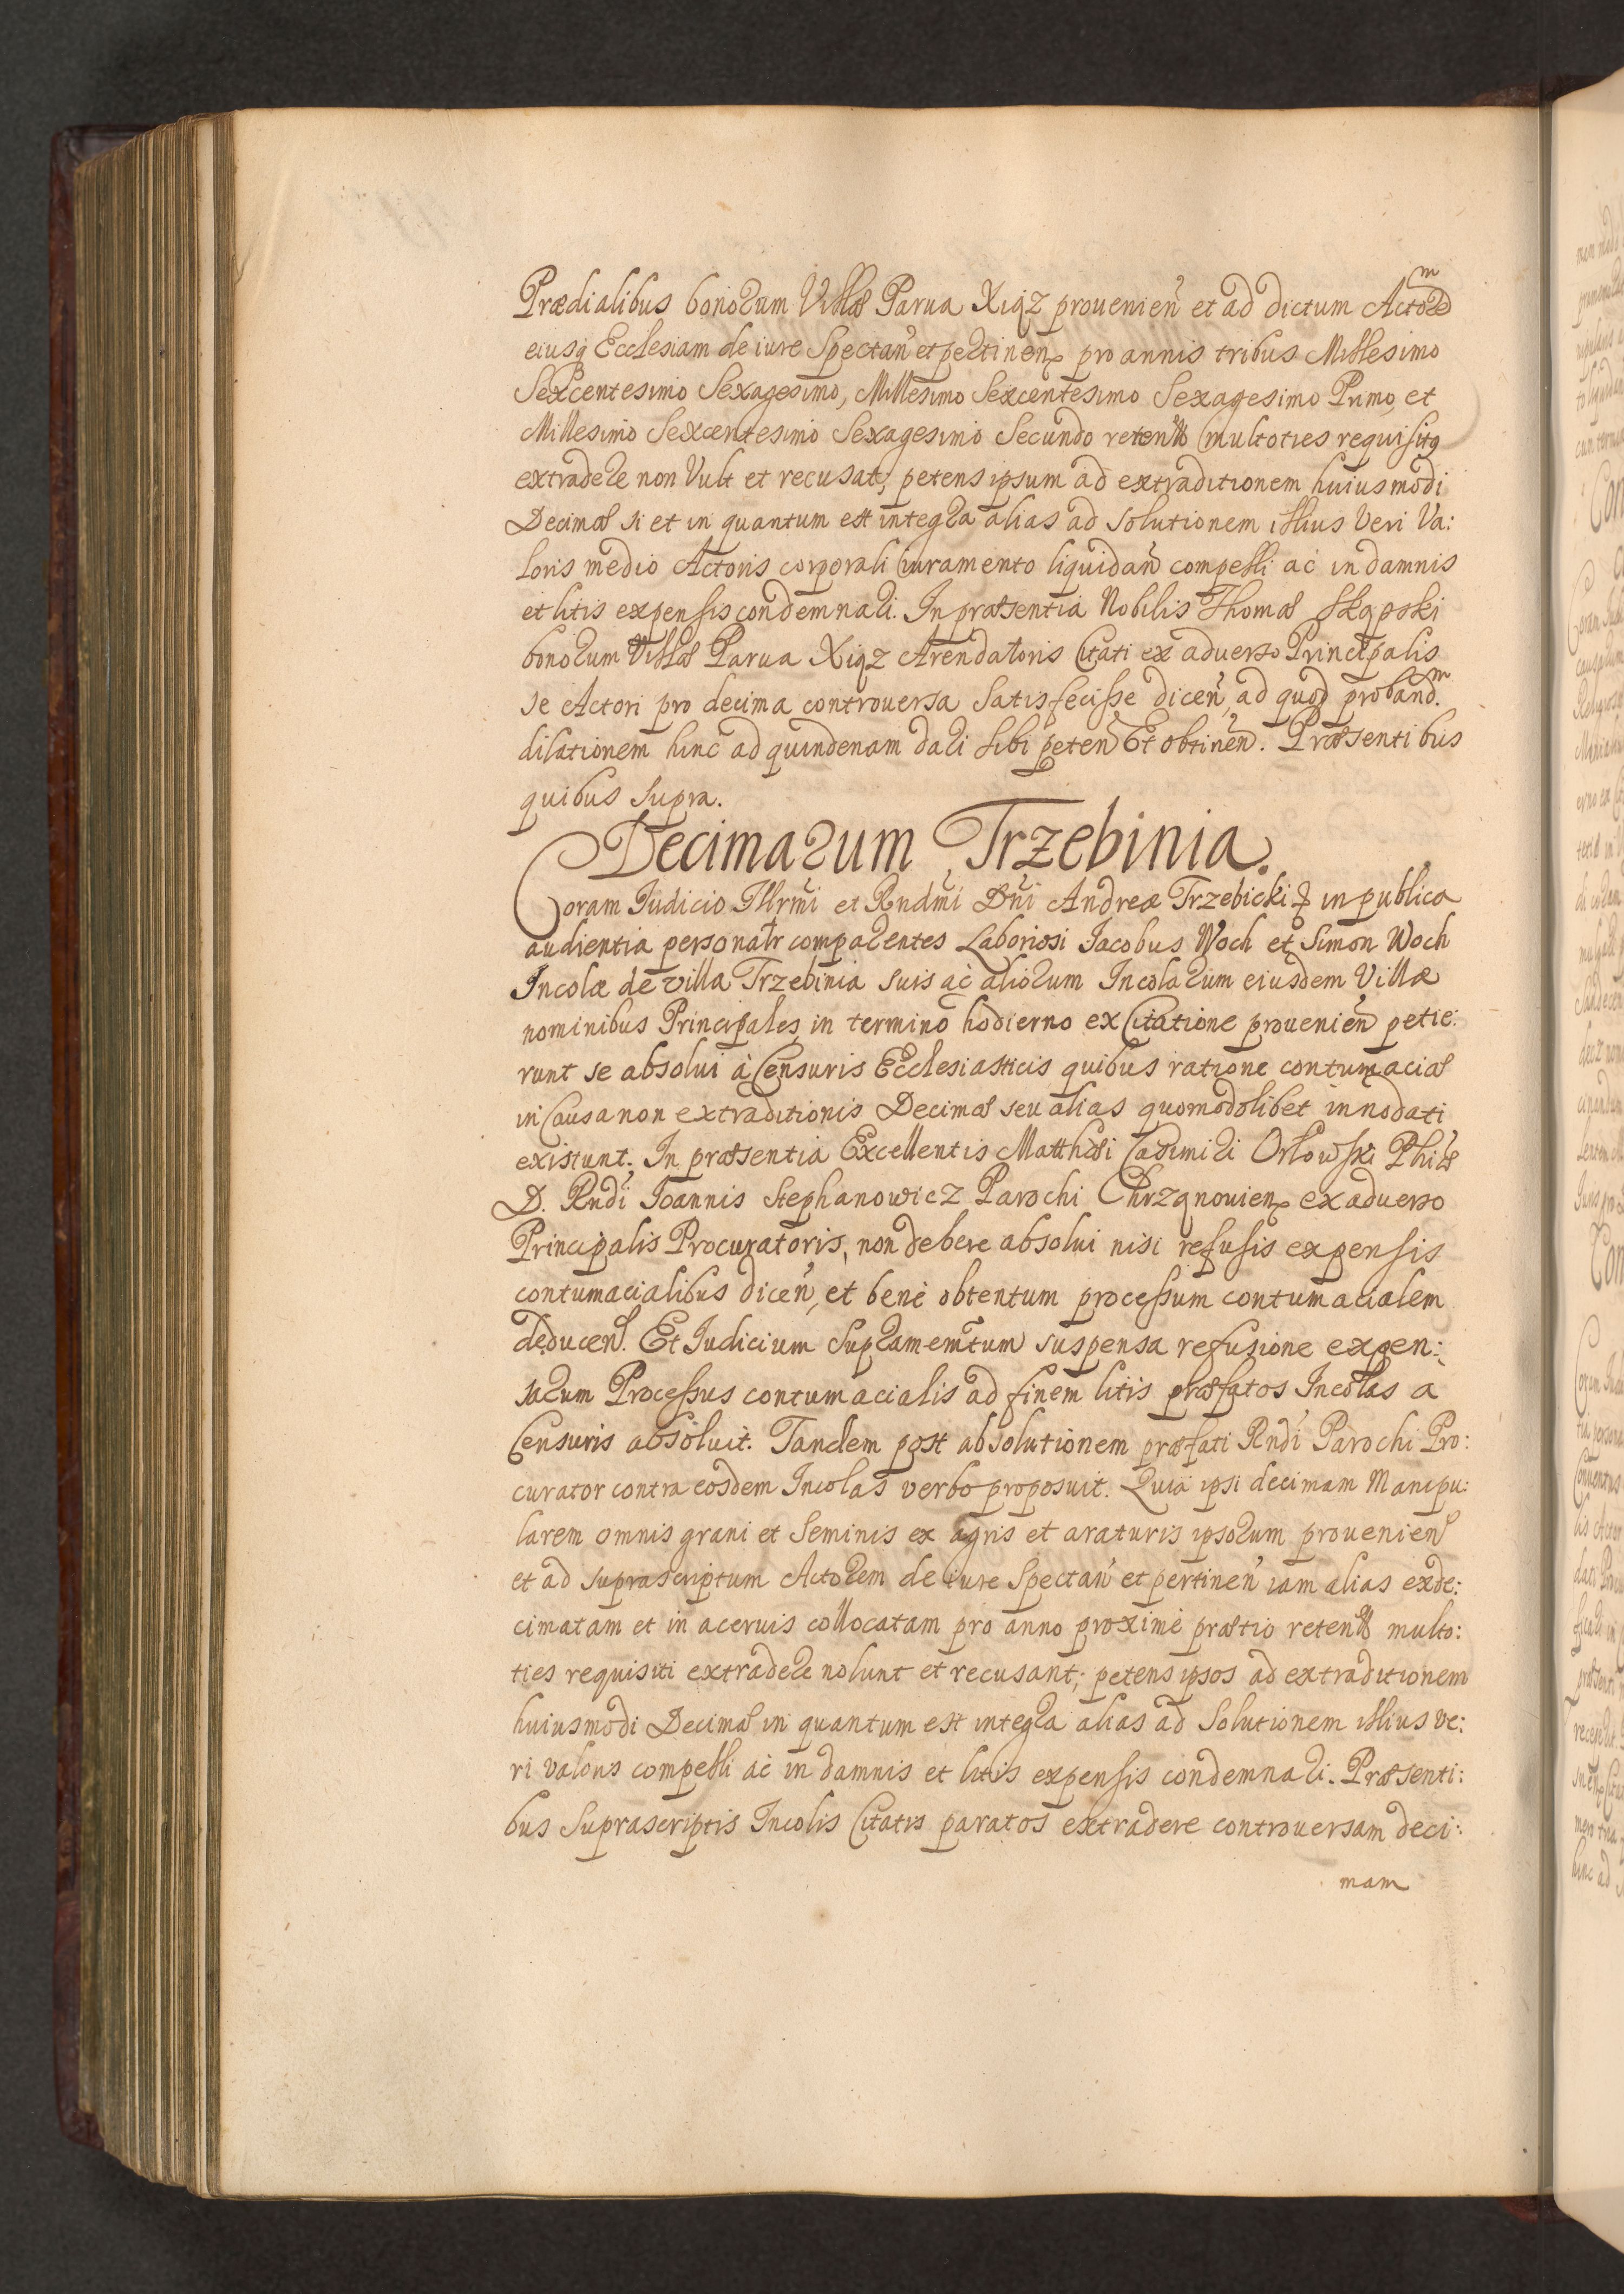 Prædialibus bonorum Villæ Parua Xiąz prouenień et ad dictum Actorem
eiusq Ecclesiam de iure Spectań et pertinen pro annis tribus Millesimo
Sexcentesimo Sexagesimo, Millesimo Sexcentesimo Sexagesimo Primo, et
Millesimo Sexcentesimo Sexagesimo Secundo multoties requisitq
extradere non Vult et recusat; petens ipsum ad extraditionem huiusmodi
Decimæ si et in quantum est integra alias ad solutionem illius Veri Va:
loris medio Actoris corporali iuramento liquidań compelli ac in damnis
et litis expensis condemnari. In præsentia Nobilis Thomæ
bonorum Villæ Parua Xiąz Arendatoris Citati ex aduerso Principalis
se Actori pro decima controuersa Satisfecisse diceń, ad quod proband.m
dilationem hinc ad quindenam dari sibi peteń Et obtineń. Præsentibus
quibus supra.
Decimarum Trzebinia.
Coram Iudicio Illrmi et Rndmi Dni Andreæ Trzebicki in publica
audientia personalr comparentes Laboriosi Iacobus Woch et Simon Woch
Incolæ de villa Trzebinia suis ac aliorum Incolarum eiusdem Villæ
nominibus Principales in termino hodierno ex Citatione prouenień petie:
runt se absolui à Censuris Ecclesiasticis quibus ratione contumaciæ
in Causa non extraditionis Decimæ seu alias quomodolibet innodati
existunt. In præsentia Excellentis Matthæi Casimiri Orłowski Phiæ
D. Rndi Ioannis Stephanowicz Parochi Chrząnouien ex aduerso
Principalis Procuratoris, non debere absolui nisi refusis expensis
contumacialibus diceń, et bene obtentum processum contumacialem
deducen. Et Iudicium Supramemtum suspensa refusione expen:
sarum Processus contumacialis ad finem litis præfatos Incolas a
Censuris absoluit. Tandem post absolutionem præfati Rndi Parochi Pro:
curator contra eosdem Incolas verbo proposuit. Quia ipsi decimam Manipu:
larem omnis grani et Seminis ex agris et araturis ipsorum prouenien
et ad suprascriptum Actorem de iure Spectań et pertineń iam alias exde:
cimatam et in aceruis collocatam pro anno proxime præterito multo:
ties requisiti extradere nolunt et recusant; petens ipsos ad extraditionem
huiusmodi Decimæ in quantum est integra alias ad Solutionem illius ve:
ri valoris compelli ac in damnis et litis expensis condemnari. Præsenti:
bus Suprascriptis Incolis Citatis paratos extradere controuersam deci:
mam